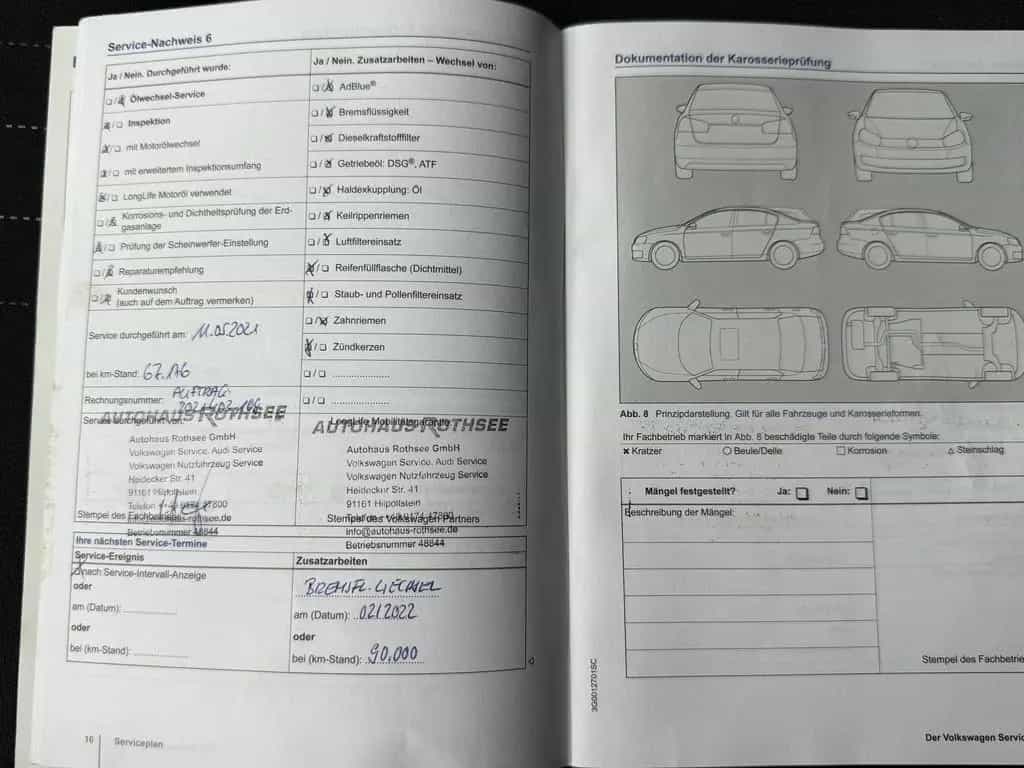 Service-Nachweis 6
Ja / Nein. Durchgeführt wurde:
Ölwechsel-Service
Inspektion
mit Motorölwechsel
mit erweitertem Inspektionsumfang
LongLife Motoröl verwendet
Korrosions- und Dichtheitsprüfung der Erd-
gasanlage
Prüfung der Scheinwerfer-Einstellung
Reparaturempfehlung
Kundenwunsch
(auch auf dem Auftrag vermerken)
Service durchgeführt am: 11.05.2021
bei km-Stand:
Rechnungsnummer: AUFTRAG
Service durchgeführt von:
AUTOHAUS ROTHSEE
Autohaus Rothsee GmbH
Volkswagen Service. Audi Service
Volkswagen Nutzfahrzeug Service
Heidecker Str. 41
91161 Hilpoltstein
Telefon
Stempel des
Betriebsnummer 48844
Ja / Nein. Zusatzarbeiten – Wechsel von:
AdBlue®
Bremsflüssigkeit
Dieselkraftstofffilter
Getriebeöl: DSG®, ATF
Haldexkupplung: Öl
Keilrippenriemen
Luftfiltereinsatz
Reifenfüllflasche (Dichtmittel)
Staub- und Pollenfiltereinsatz
Zahnriemen
Zündkerzen
AUTOHAUS ROTHSEE
Autohaus Rothsee GmbH
Volkswagen Service. Audi Service
Volkswagen Nutzfahrzeug Service
Heidecker Str. 41
91161 Hilpoltstein
Stempel des Volkswagen Partners
info@autohaus-rothsee.de
Betriebsnummer 48844
Ihre nächsten Service-Termine
Service-Ereignis
nach Service-Intervall-Anzeige
oder
am (Datum):
oder
bei (km-Stand):
Zusatzarbeiten
BREMSFL. WECHSEL
am (Datum): 02.2022
oder
bei (km-Stand): 90.000
16
Serviceplan
Dokumentation der Karosserieprüfung
Abb. 8 Prinzipdarstellung. Gilt für alle Fahrzeuge und Karosserieformen.
Ihr Fachbetrieb markiert in Abb. 8 beschädigte Teile durch folgende Symbole:
× Kratzer ○ Beule/Delle □ Korrosion △ Steinschlag
Mängel festgestellt? Ja: Nein:
Beschreibung der Mängel:
Stempel des Fachbetrie
3G0012701SC
Der Volkswagen Servic